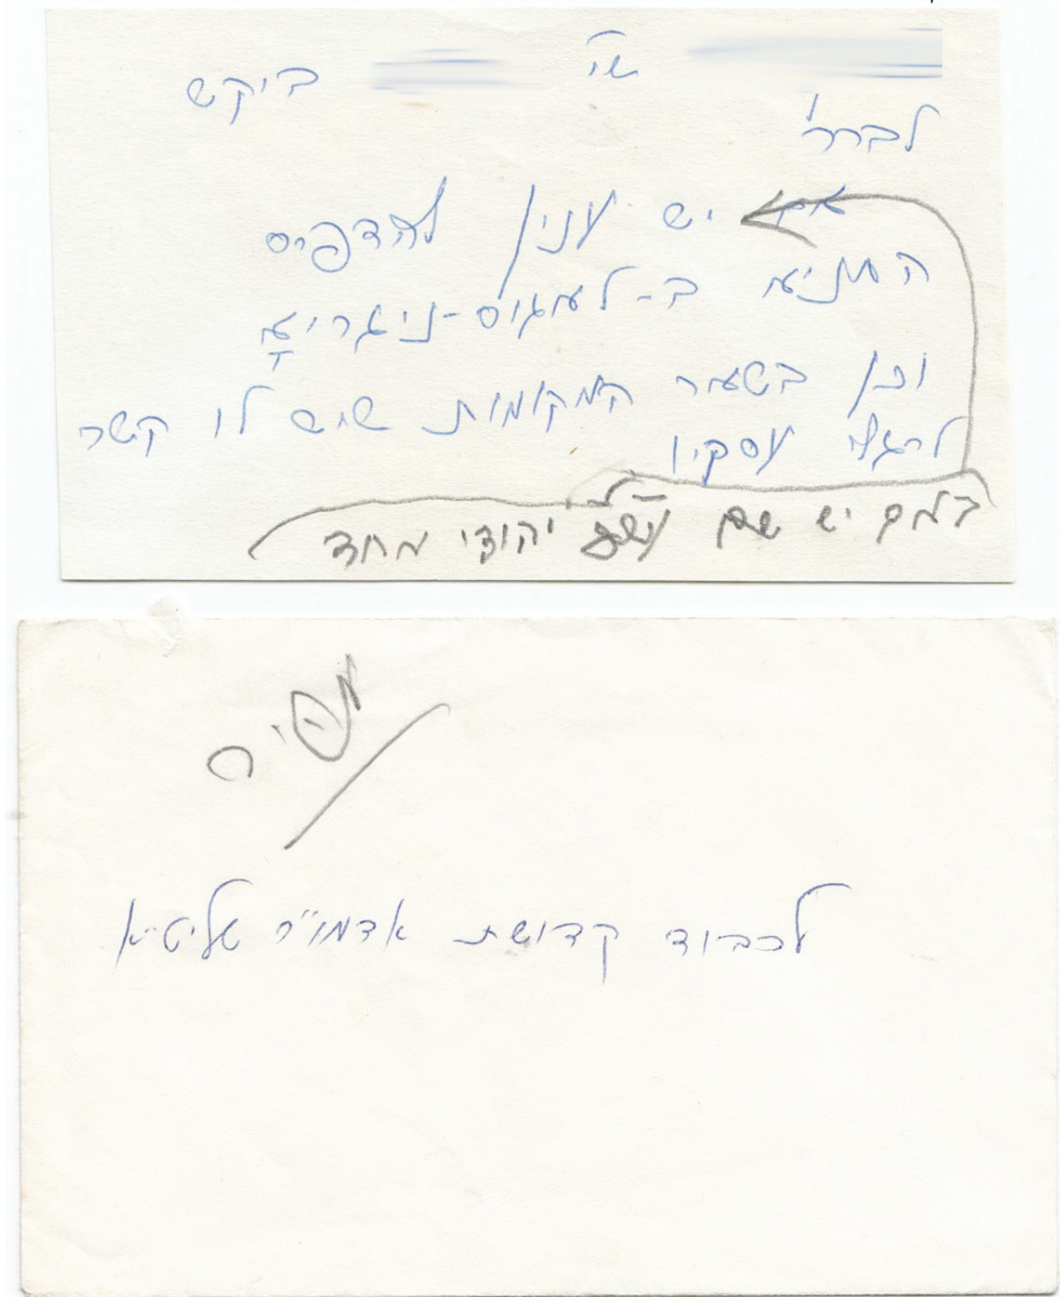 שי' ביקש
לברר
אם יש ענין להדפיס
התניא ב-לאגוס-ניגריאָ
וכן בשאר המקומות שיש לו קשר
לרגלי עסקיו
באם יש שם יהודי אחד
לכבוד קדושת אדמו"ר שליט"א